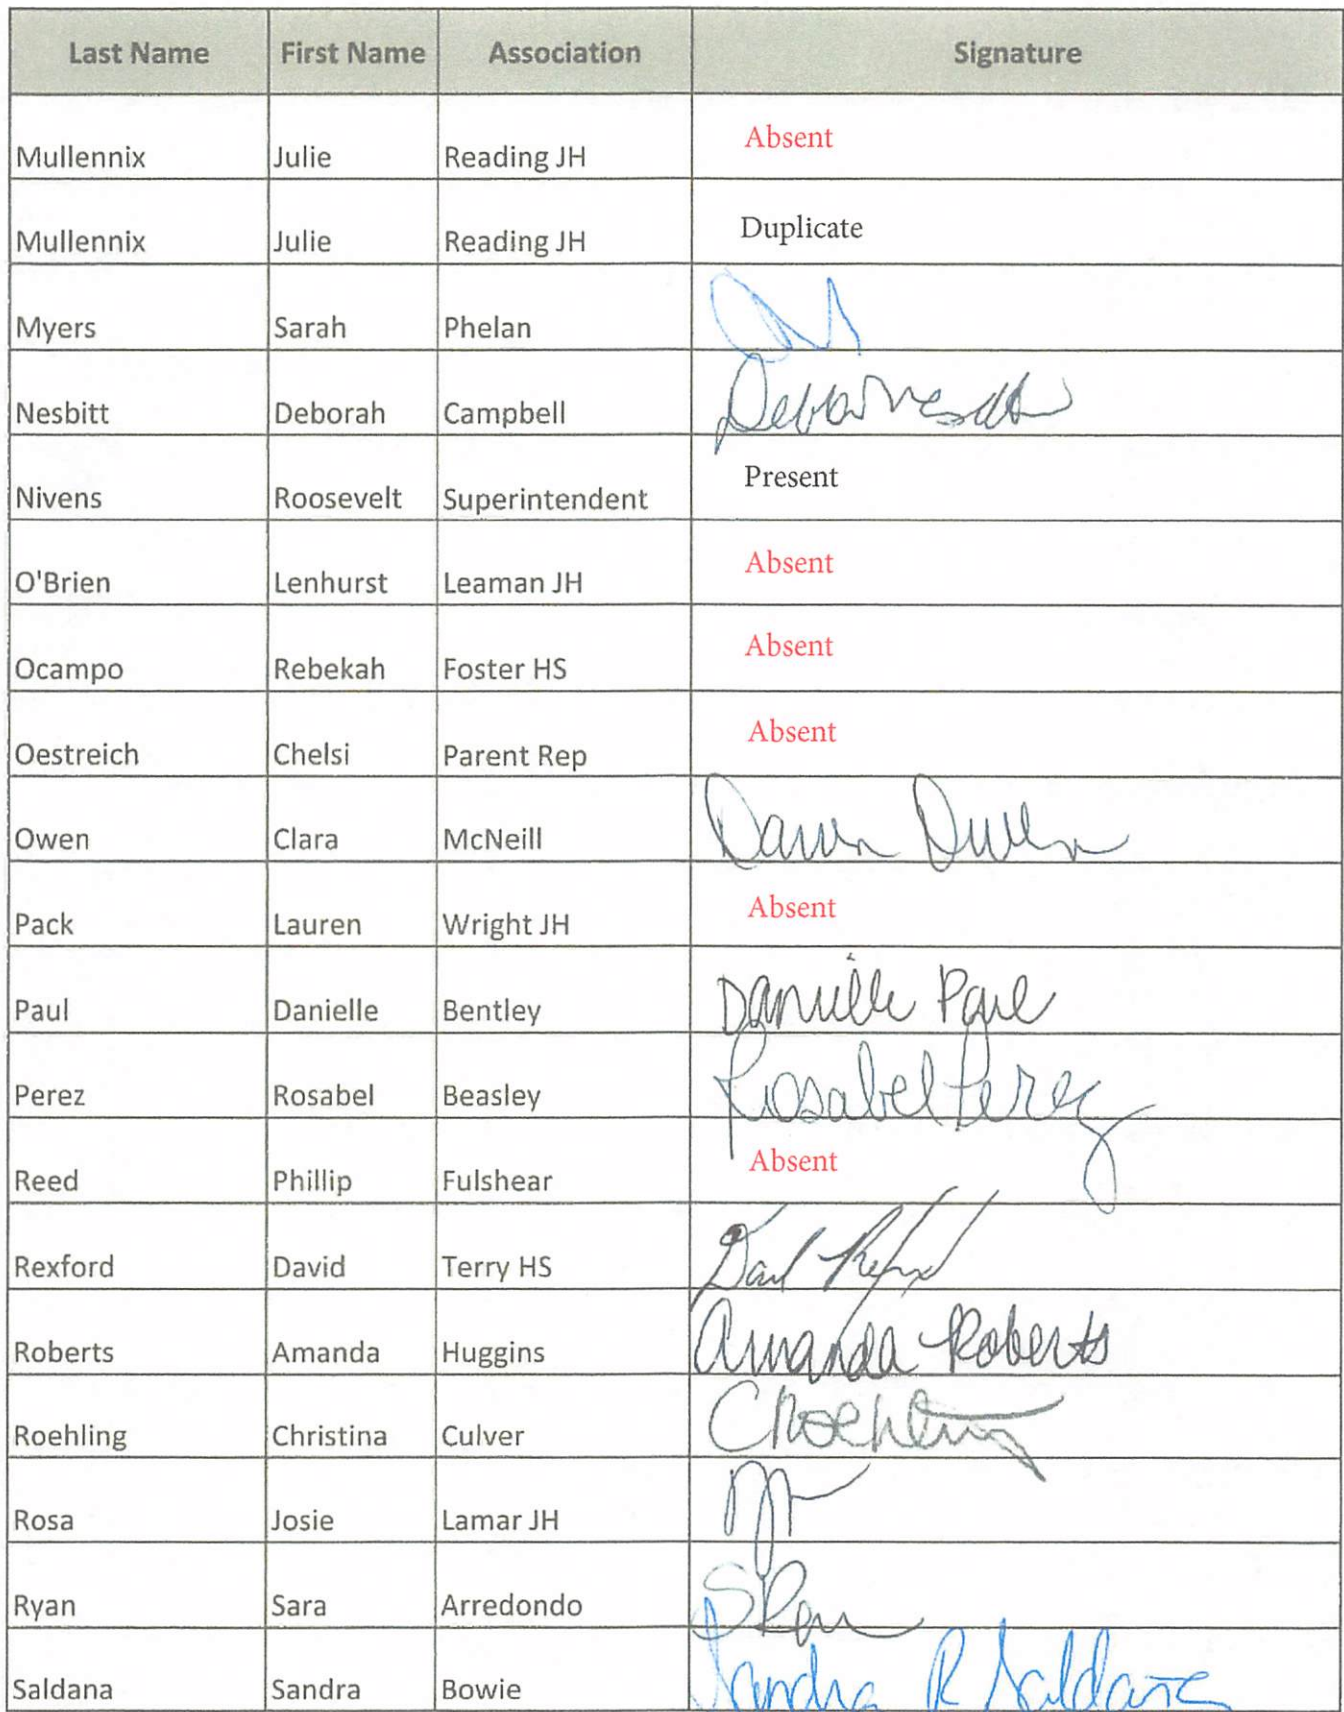 Last Name First Name Association Signature
Mullennix Julie Reading JH Absent
Mullennix Julie Reading JH Duplicate
Myers Sarah Phelan
Nesbitt Deborah Campbell
Nivens Roosevelt Superintendent Present
O'Brien Lenhurst Leaman JH Absent
Ocampo Rebekah Foster HS Absent
Oestreich Chelsi Parent Rep Absent
Owen Clara McNeill Owen
Pack Lauren Wright JH Absent
Paul Danielle Bentley Danielle Paul
Perez Rosabel Beasley Rosabel Perez
Reed Phillip Fulshear Absent
Rexford David Terry HS
Roberts Amanda Huggins Amanda Roberts
Roehling Christina Culver CRoehling
Rosa Josie Lamar JH
Ryan Sara Arredondo
Saldana Sandra Bowie Sandra R Saldana